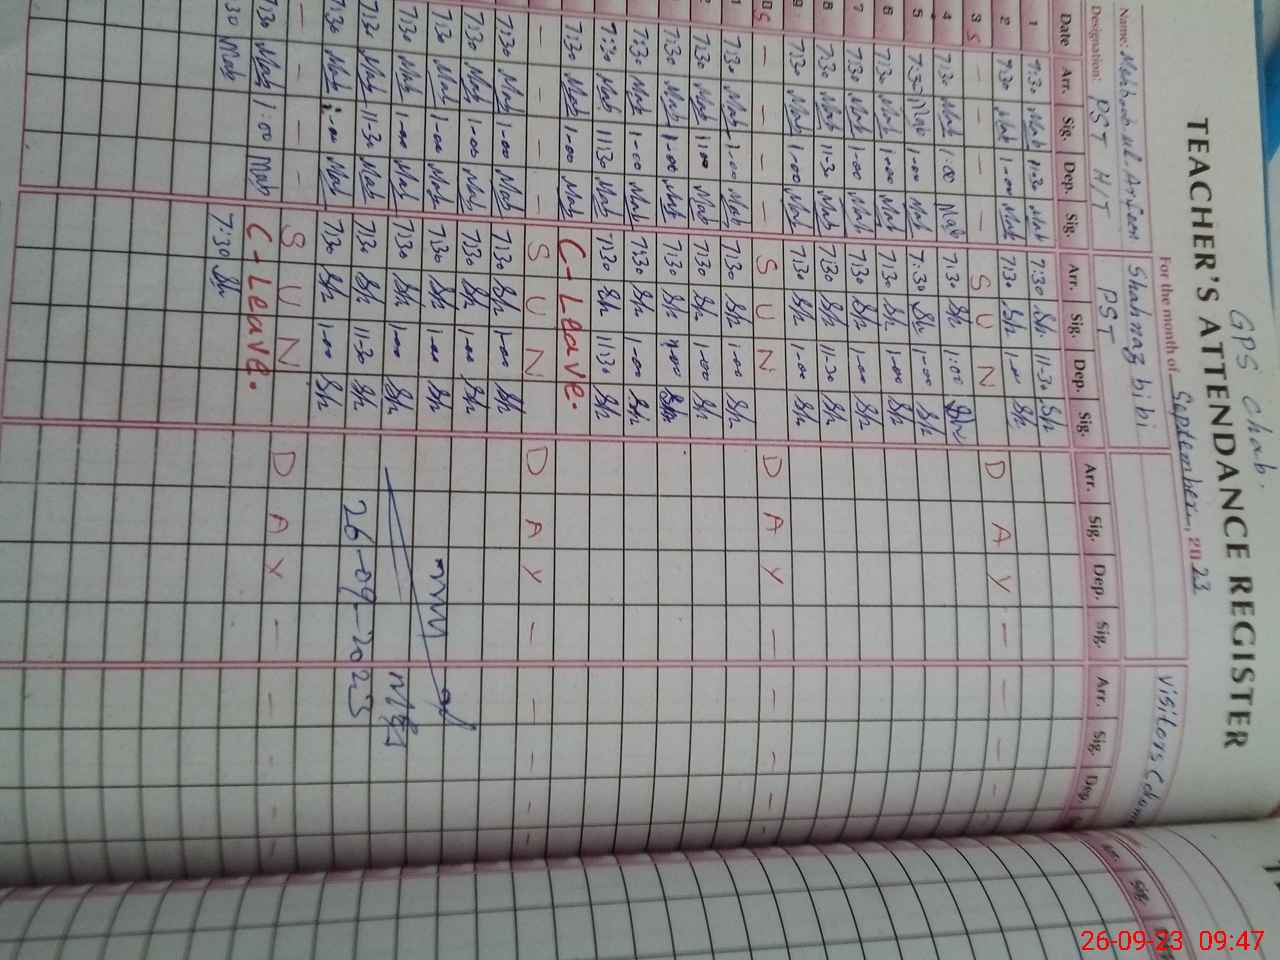 GPS Chab.
TEACHER'S ATTENDANCE REGISTER
For the month of September, 2023
Name: Shahnaz bibi Visitors Colum
Designation: PST H/T PST
Date Arr. Sig. Dep. Sig. Arr. Sig. Dep. Sig. Arr. Sig. Dep. Sig. Arr. Sig. Dep.
1 7:30 Mab 11:30 Mab 7:30 Sh 11-30 Sh
2 7:30 Mab 1-00 Mab 7:30 Sh 1-00 Sh
3 S - - - - S U N D A Y - - - -
4 7:30 Mab 1:00 Mab 7:30 Sh 1:00 Sh
5 7:30 Mab 1-00 Mab 7:30 Sh 1-00 Sh
6 7:30 Mab 1-00 Mab 7:30 Sh 1-00 Sh
7 7:30 Mab 1-00 Mab 7:30 Sh 1-00 Sh
8 7:30 Mab 11-30 Mab 7:30 Sh 11-30 Sh
9 7:30 Mab 1-00 Mab 7:30 Sh 1-00 Sh
0 S - - - - S U N D A Y - - - - -
1 7:30 Mab 1-00 Mab 7:30 Sh 1-00 Sh
2 7:30 Mab 1:00 Mab 7:30 Sh 1-00 Sh
7:30 Mab 1-00 Mab 7:30 Sh 1-00 Sh
7:30 Mab 1-00 Mab 7:30 Sh 1-00 Sh
7:30 Mab 11:30 Mab 7:30 Sh 11:30 Sh
7:30 Mab 1-00 Mab C-Leave.
- - - - S U N D A Y - - - - -
7:30 Mab 1-00 Mab 7:30 Sh 1-00 Sh
7:30 Mab 1-00 Mab 7:30 Sh 1-00 Sh
7:30 Mab 1-00 Mab 7:30 Sh 1-00 Sh
7:30 Mab 1-00 Mab 7:30 Sh 1-00 Sh
7:30 Mab 11-30 Mab 7:30 Sh 11-30 Sh
26-09-2023
7:30 Mab 1-00 Mab 7:30 Sh 1-00 Sh
- - - - S U N D A Y - - - - -
7:30 Mab 1:00 Mab C-Leave.
30 Mab 7:30 Sh
Arr. Sig.
26-09-23 09:47